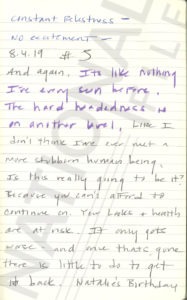 constant
NO excitement -
8.4.19 # 5
And again, Its like nothing
I've every seen before.
The hard headedness is
on another level. Like I
don't think Ive ever met a
more stubborn human being.
Is this really going to be it?
Because you can't afford to
continue on. Your looks + health
are at risk. It only gets
worse and once thats gone
there is little to do to get
it back. Natalies Birthday